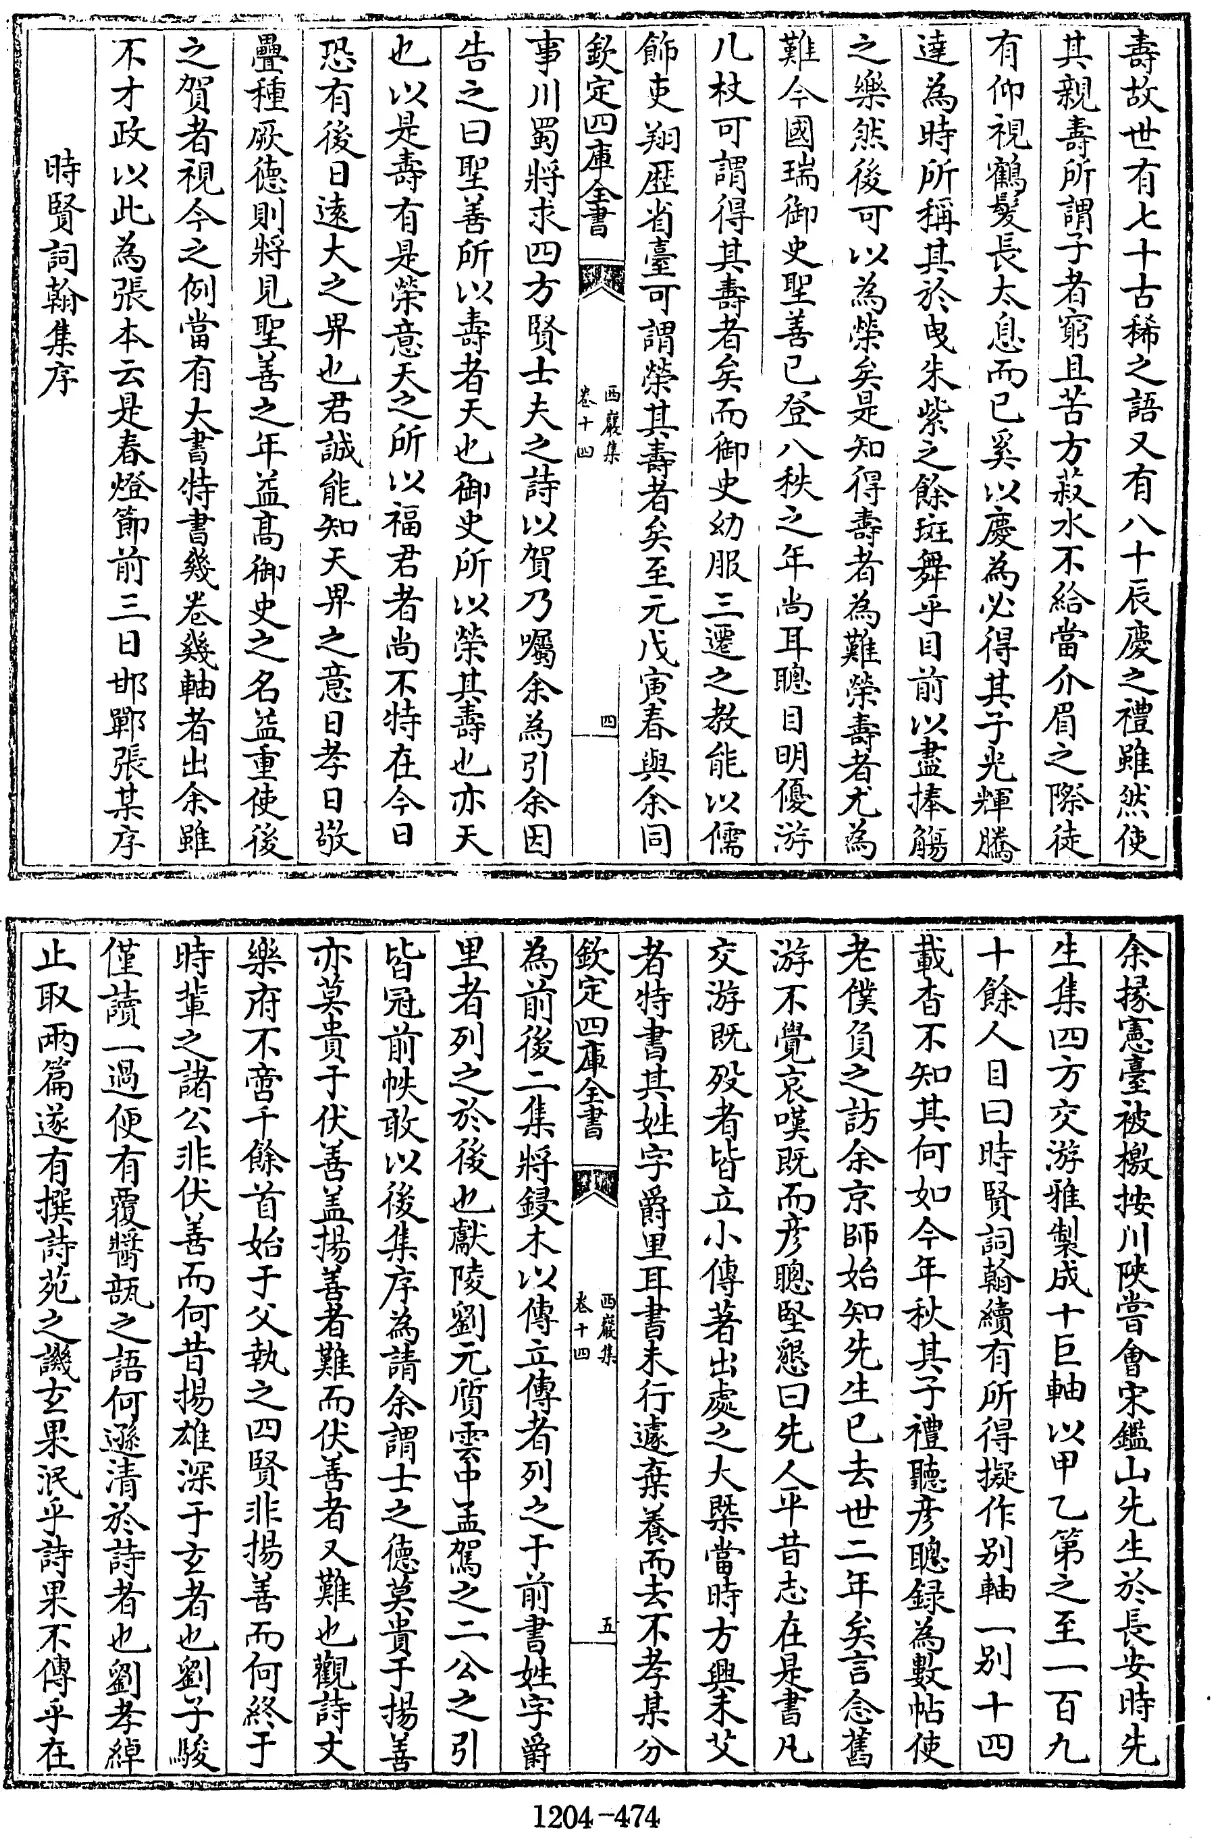 壽故世有七十古稀之語又有八十辰慶之禮雖然使
其親壽所謂子者窮且苦方菽水不給當介眉之際徒
有仰視鶴髮長太息而已奚以慶為必得其子光輝騰
達為時所稱其於曳朱紫之餘斑舞乎目前以盡捧觴
之樂然後可以為榮矣是知得壽者為難榮壽者尤為
難今國瑞御史聖善已登八秩之年尚耳聰目明優游
几杖可謂得其壽者矣而御史幼服三遷之教能以儒
飾吏翔歴省臺可謂榮其壽者矣至元戊寅春與余同
欽定四庫全書
西巖集
卷十四
四
事川蜀將求四方賢士夫之詩以賀乃囑余為引余因
告之曰聖善所以壽者天也御史所以榮其壽也亦天
也以是壽有是榮意天之所以福君者尚不特在今日
恐有後日逺大之畀也君誠能知天畀之意日孝日敬
疊種厥德則將見聖善之年益髙御史之名益重使後
之賀者視今之例當有大書特書幾卷幾軸者出余雖
不才政以此為張本云是春燈節前三日邯鄲張某序
時賢詞翰集序
余掾憲臺被檄按川陜嘗會宋鑑山先生於長安時先
生集四方交游雅製成十巨軸以甲乙第之至一百九
十餘人目曰時賢詞翰續有所得擬作别軸一别十四
載杳不知其何如今年秋其子禮聽彦聰録為數帖使
老僕負之訪余京師始知先生已去世二年矣言念舊
游不覺哀嘆既而彦聰堅懇曰先人平昔志在是書凡
交游既殁者皆立小傳著出處之大槩當時方興未艾
者特書其姓字爵里耳書未行遽棄養而去不孝某分
欽定四庫全書
西巖集
卷十四
五
為前後二集將鋟木以傳立傳者列之于前書姓字爵
里者列之於後也獻陵劉元質雲中孟駕之二公之引
皆冠前帙敢以後集序為請余謂士之德莫貴于揚善
亦莫貴于伏善盖揚善者難而伏善者又難也觀詩文
樂府不啻千餘首始于父執之四賢非揚善而何終于
時輩之諸公非伏善而何昔揚雄深于玄者也劉子駿
僅讀一過便有覆醬瓿之語何遜清於詩者也劉孝綽
止取兩篇遂有撰詩苑之譏玄果泯乎詩果不傳乎在
1204-474